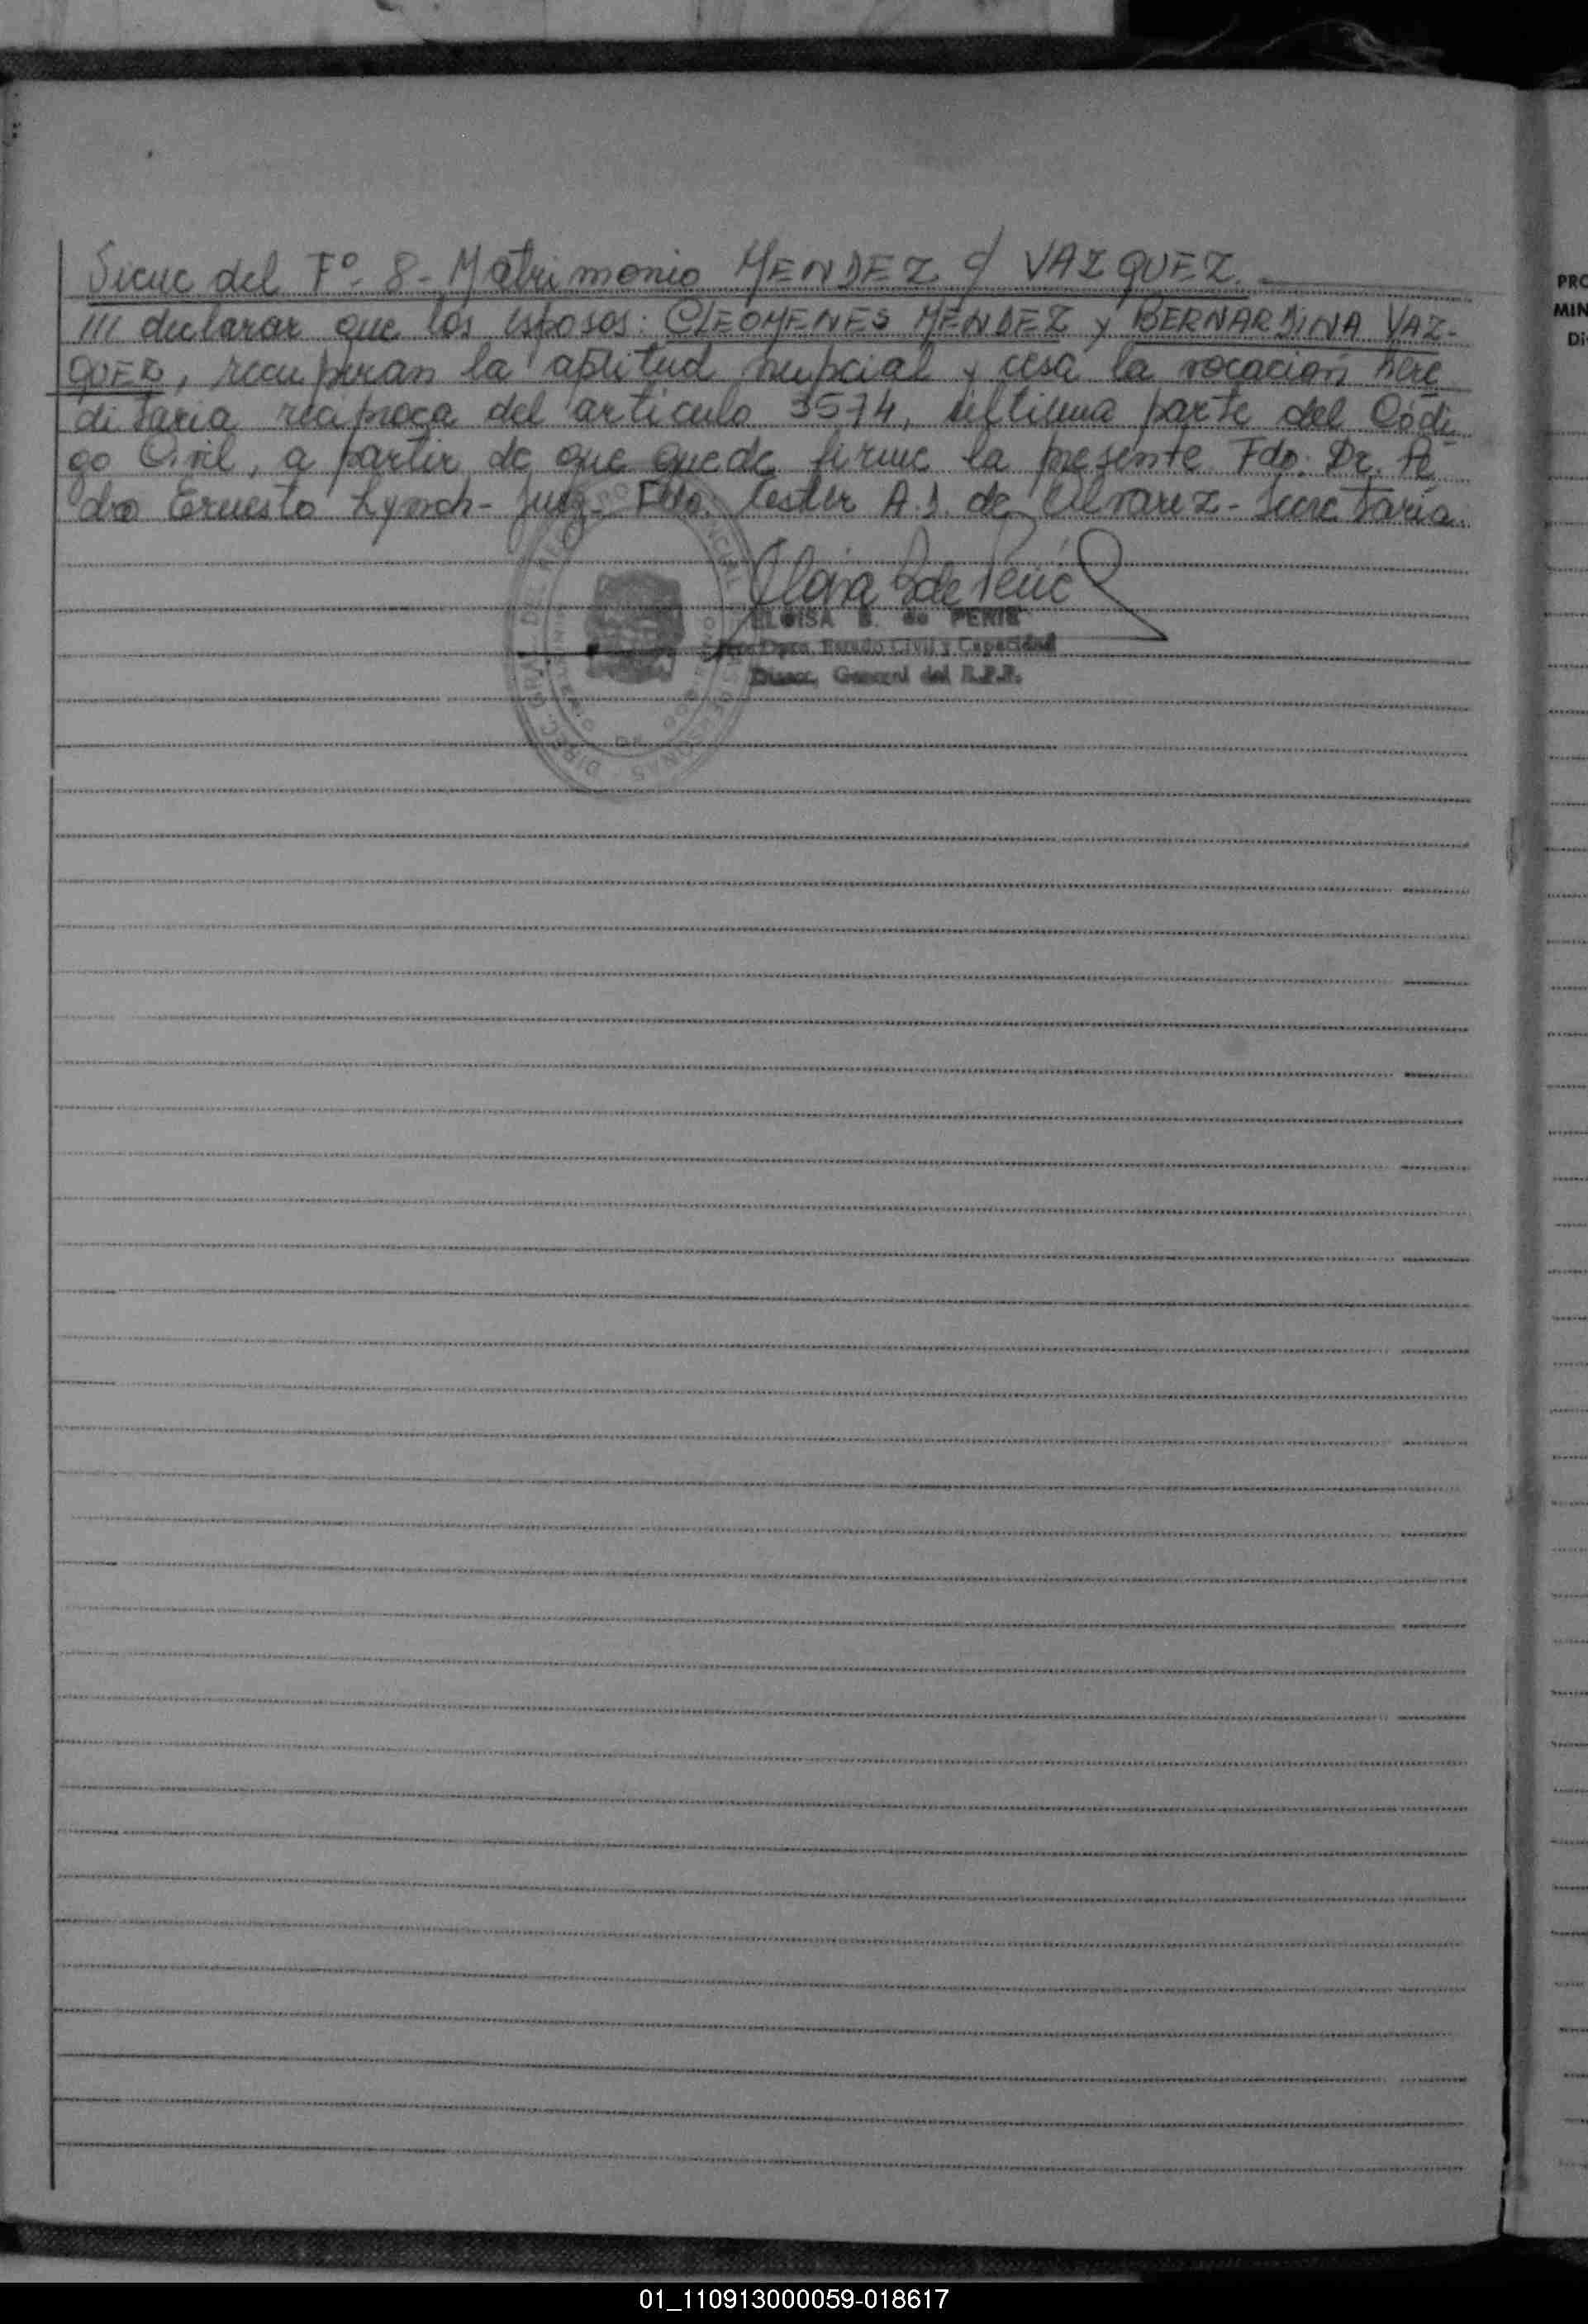 Sicue del Fº 8 - Matrimonio MENDEZ c/ VAZQUEZ.
/// declarar que los esposos: CLEOMENES MENDEZ y BERNARDINA VAZ-
QUEZ, recuperan la aptitud nupcial y cesa la vocación here
ditaria recíproca del artículo 3574, última parte del Códi
go Civil, a partir de que quede firme la presente. Fdo: Dr. Pe
dro Ernesto Lynch - Juez - Fdo: Lester A. J. de Alvarez - Secretaria.
ELOISA B. de PERIE
Dpto. Estado Civil y Capacidad
Direcc. General del R.P.P.
PRO
MIN
Di
01_110913000059-018617